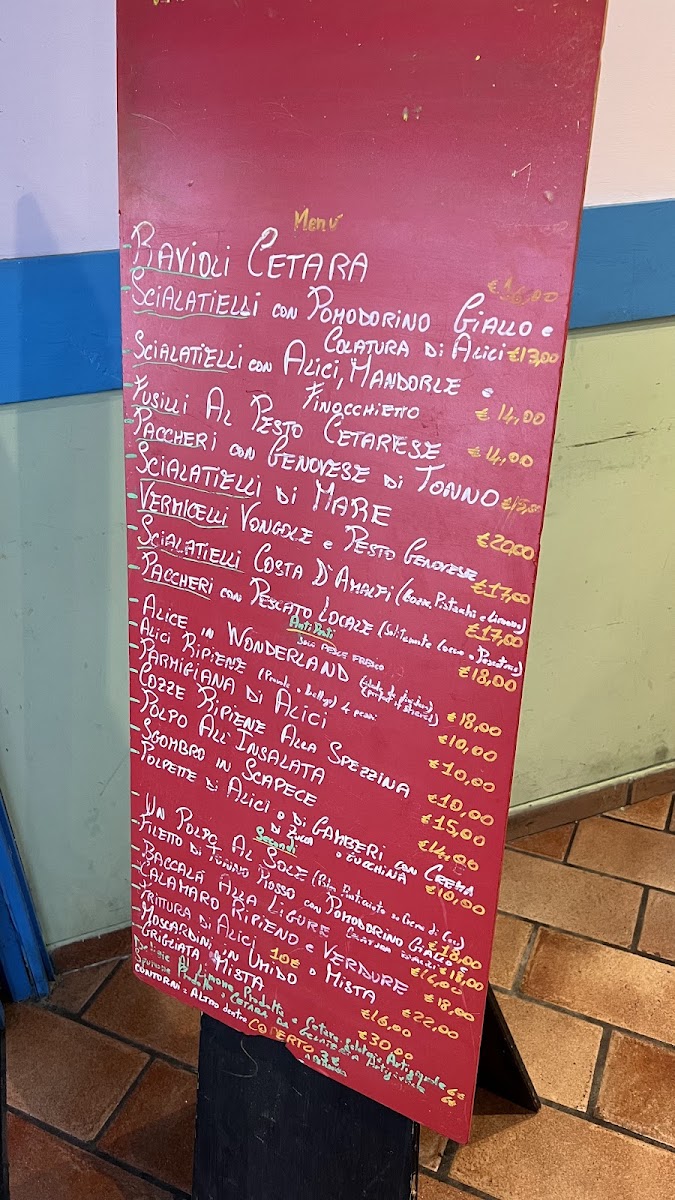 Menú
RAVIOLI CETARA €16,00
SCIALATIELLI CON POMODORINO GIALLO e
COLATURA Di ALICI €13,00
SCIALATIELLI CON ALICI, MANDORLE e
FINOCCHIETTO € 14,00
FUSILLI AL PESTO CETARESE € 14,00
PACCHERI CON GENOVESE Di TONNO €15,00
SCIALATIELLI Di MARE €20,00
VERMICELLI VONGOLE e PESTO GENOVESE €17,00
SCIALATIELLI COSTA D'AMALFI (Cozze, Pistacchi e Limone) €17,00
PACCHERI CON PESCATO LOCALE ( Cocco o ) €18,00
AntiPasti
SOLO PESCE FRESCO
ALICE in WONDERLAND €18,00
ALICI RIPIENE (Provola o ) 4 pezzi €10,00
PARMIGIANA Di ALICI €10,00
COZZE RIPIENE ALLA SPEZZINA €10,00
POLPO ALL'INSALATA €15,00
SGOMBRO in SCAPECE €14,00
POLPETTE Di ALICI o Di GAMBERI CON CREMA
Di ZUCCA o ZUCCHINA €10,00
Secondi
UN POLPO AL SOLE (Polpo su Crema di Ceci) €18,00
FILETTO Di TONNO ROSSO CON POMODORINO GIALLO e
COLATURA D'ALICI €18,00
BACCALÀ ALLA LIGURE €16,00
CALAMARO RIPIENO e VERDURE €18,00
FRITTURA Di ALICI 10€ o MISTA €22,00
MOSCARDINI in UMIDO €16,00
GRIGLIATA MISTA €30,00
Delizie Al Limone Prodotte a Cetara gelateria Artigianale 6€
Prodotto a CETARA da GELATERIA Artigianale 6€
CONTORNI = ALTRO dentro
COPERTO 3€